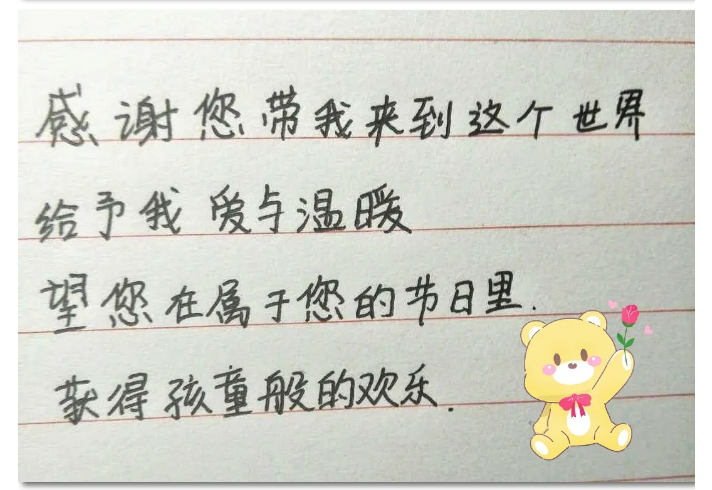 感谢您带我来到这个世界
给予我爱与温暖
望您在属于您的节日里.
获得孩童般的欢乐.